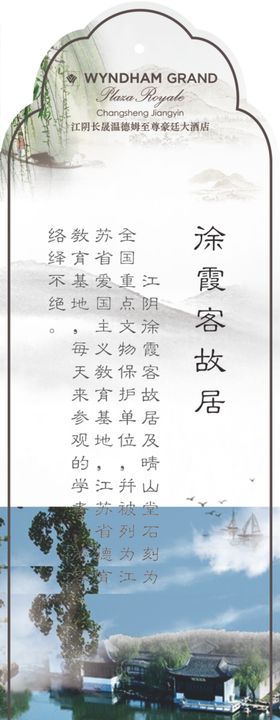 WYNDHAM GRAND
Plaza Royale
Changsheng Jiangyin
江阴长晟温德姆至尊豪廷大酒店
徐霞客故居
江阴徐霞客故居及晴山堂石刻为
全国重点文物保护单位，并被列为江
苏省爱国主义教育基地，江苏省德育
教育基地，每天来参观的学
络绎不绝。